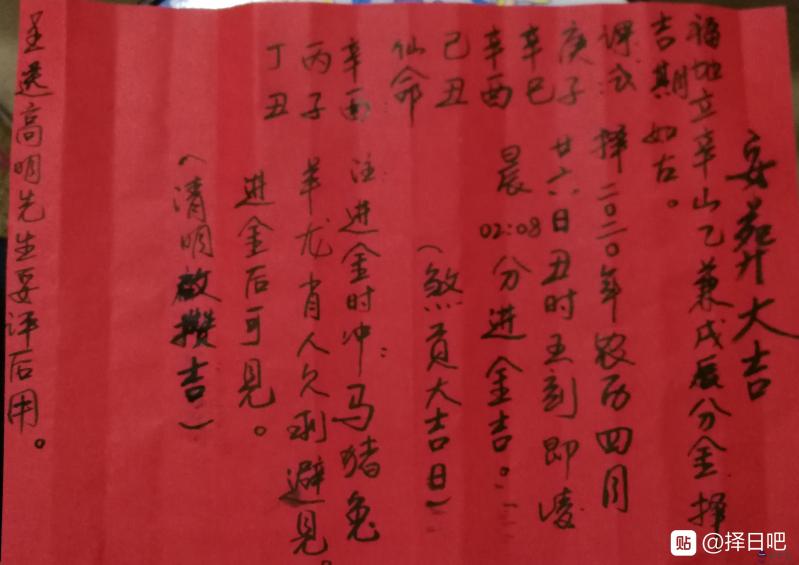 安葬大吉
福地立辛山乙兼戌辰分金择
吉期如右。
课式 择二〇二〇年农历四月
庚子 廿六日丑时五刻即凌
辛巳 晨02:08分进金吉。
辛酉
己丑 (煞贡大吉日)
仙命
辛酉 注:进金时冲:马猪兔
丙子 羊龙肖人欠利避见。
丁丑 进金后可见。
(清明启攒吉)
呈送高明先生要评后用。
贴 @择日吧